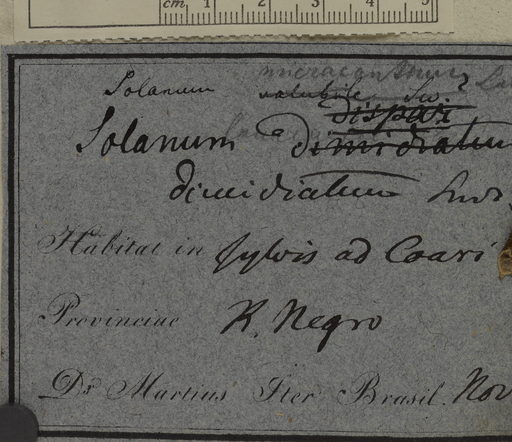 cm 1 2 3 4 5
micracanthum
Solanum volubile Sw?
dispar
Solanum dimidiatum
dimidiatum
Habitat in sylvis ad Coari
Provinciae R. Negro
Dr Martius Iter Brasil. Nov